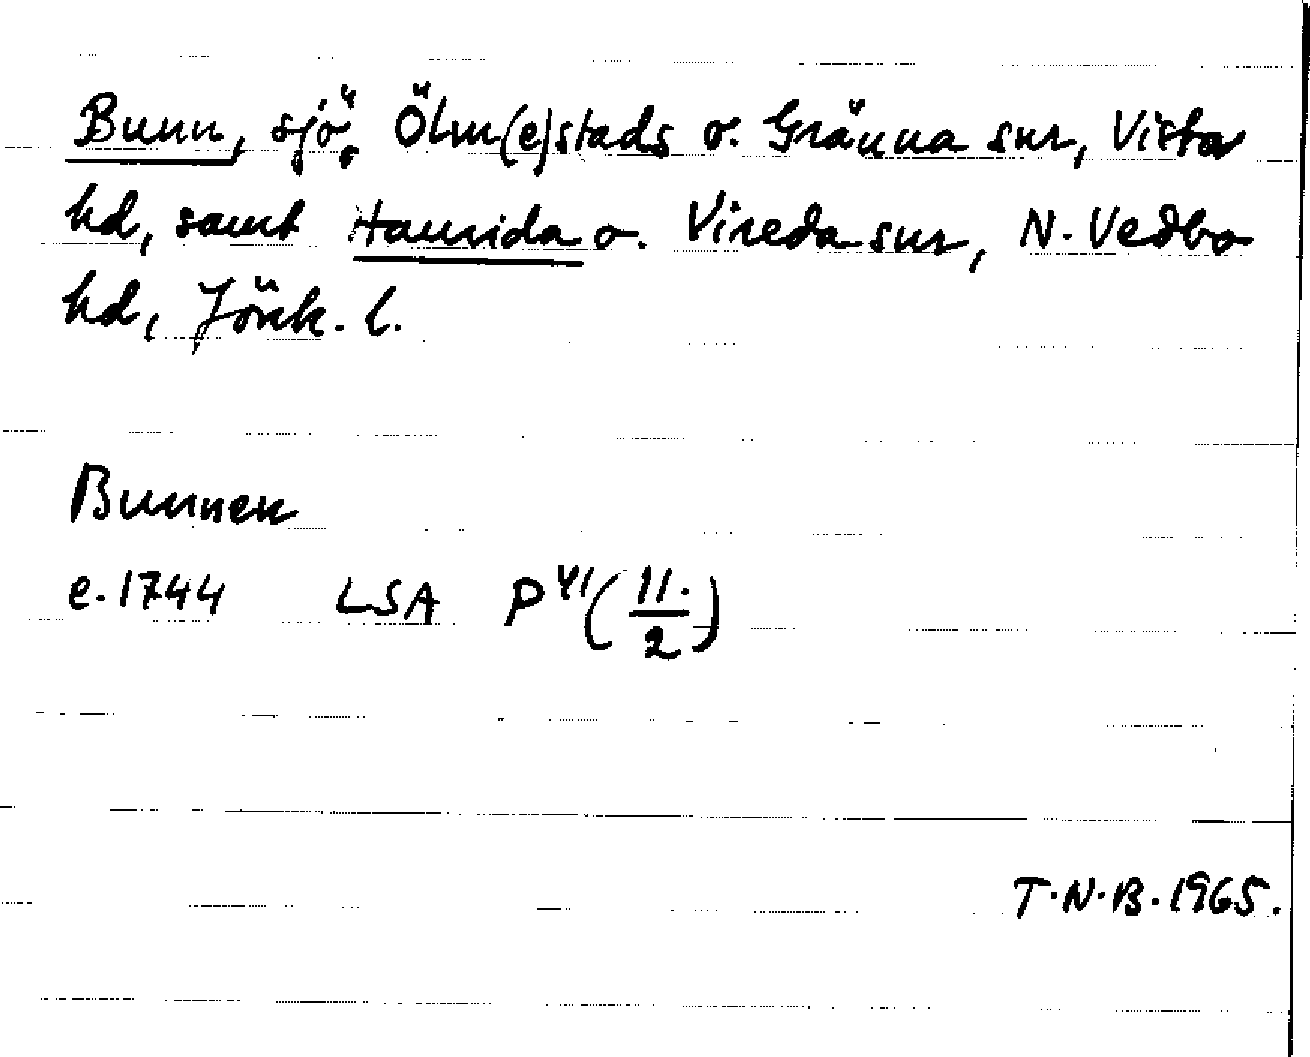 Bunn, sjö, Ölm(e)stads o. Gränna snr, Vista
hd, samt Haurida o. Vireda snr, N. Vedbo
hd, Jönk. l.
Bunnen
e. 1744 LSA P41(11./2)
T.N.B. 1965.